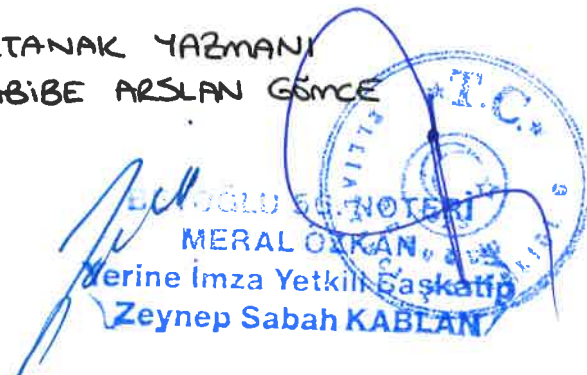 TANAK YAZMANI
BİBE ARSLAN GÖMCE
T.C.
NOTERİ
MERAL ÖZKAN
Yerine İmza Yetkili Başkatip
Zeynep Sabah KABLAN